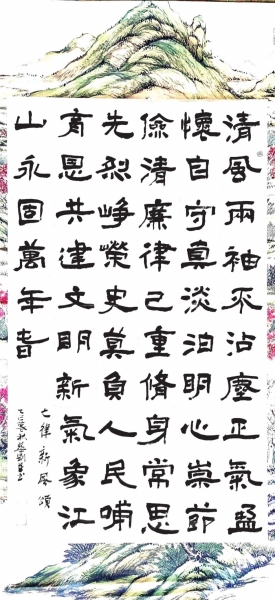 清風兩袖不沾塵正氣盈
懷自守真淡泊明心崇節
儉清廉律己重脩身常思
先烈崢榮史莫負人民哺
育恩共建文明新氣象江
山永固萬年春
七律新風頌